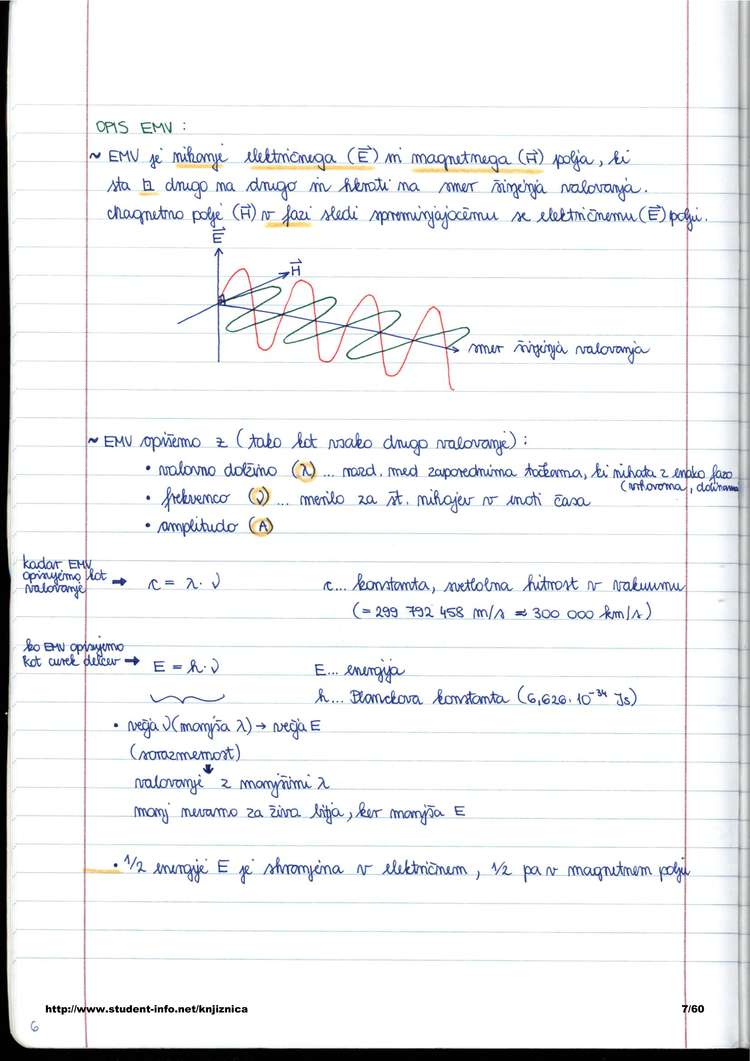 OPIS EMV :
~ EMV je nihanje električnega (E⃗) in magnetnega (H⃗) polja, ki
sta ⊥ drugo na drugo in hkrati na smer širjenja valovanja.
Magnetno polje (H⃗) v fazi sledi spreminjajočemu se električnemu (E⃗) polju.
E⃗
H⃗
smer širjenja valovanja
~ EMV opišemo z (tako kot vsako drugo valovanje) :
• valovno dolžino (λ) ... razd. med zaporednima točkama, ki nihata z enako fazo
(vrhovoma, dolinama
• frekvenco (ν) ... merilo za št. nihajev v enoti časa
• amplitudo (A)
kadar EMV
opisujemo kot
valovanje → c = λ · ν
c... konstanta, svetlobna hitrost v vakuumu
(= 299 792 458 m/s ≈ 300 000 km/s)
ko EMV opisujemo
kot curek delcev → E = h · ν
E... energija
h... Planckova konstanta (6,626 · 10⁻³⁴ Js)
• večja ν (manjša λ) → večja E
(sorazmernost)
valovanje z manjšimi λ
manj nevarno za živa bitja, ker manjša E
• 1/2 energije E je shranjena v električnem, 1/2 pa v magnetnem polju
http://www.student-info.net/knjiznica
7/60
6